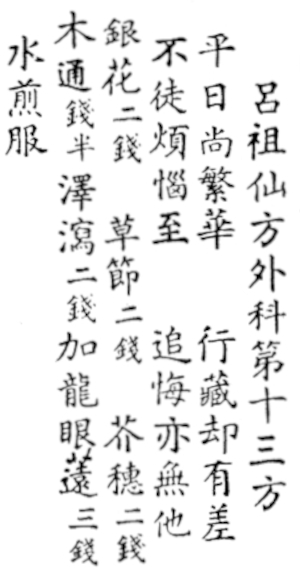 呂祖仙方外科第十三方
平日尚繁華 行藏却有差
不徒煩惱至 追悔亦無他
銀花二錢 草節二錢 芥穗二錢
木通錢半 澤瀉二錢加龍眼薳三錢
水煎服